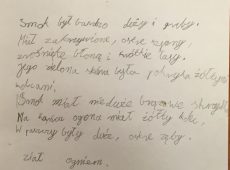 Smok był bardzo duży i gruby.
Miał zakrzywione, ostre szpony,
błoną i krótkie łapy.
Jego zielona skóra była pokryta żółtymi
Smok miał nieduże brązowe skrzydła
Na końcu ogona miał żółty kolec,
W paszczy były duże, ostre zęby.
ział ogniem.